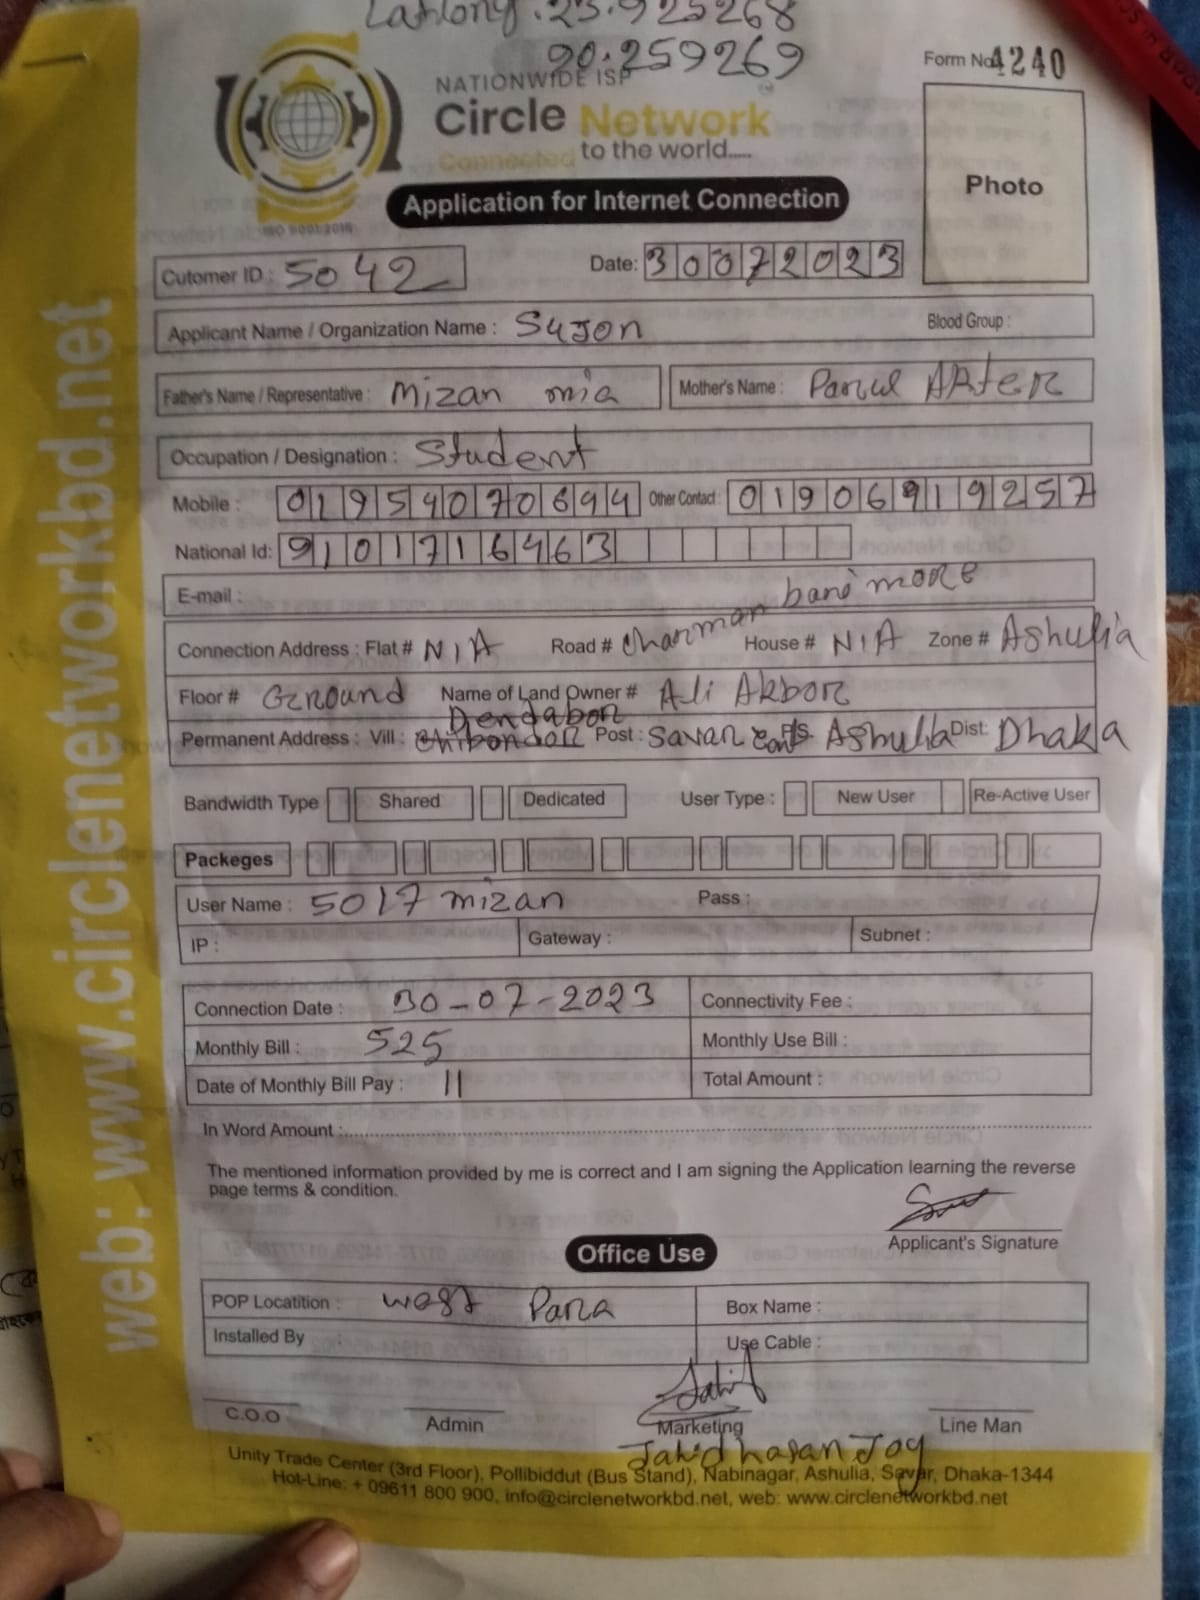 Latlong: 23.925268
90.259269
Form No 4240
NATIONWIDE ISP
Circle Network
Connected to the world.....
ISO 9001:2015
Application for Internet Connection
Photo
Cutomer ID : 5042
Date: 30072023
Applicant Name / Organization Name : Sujon Blood Group :
Father's Name / Representative : Mizan mia Mother's Name : Parul Akter
Occupation / Designation : Student
Mobile : 01954070694 Other Contact : 01906919257
National Id: 9101716463
E-mail :
Connection Address : Flat # N/A Road # Charman bari more House # N/A Zone # Ashulia
Floor # Ground Name of Land Owner # Ali Akbor
Permanent Address : Vill : Dendabor Post : Savar P/S. Ashulia Dist: Dhaka
Bandwidth Type Shared Dedicated User Type : New User Re-Active User
Packeges
User Name : 5017 mizan Pass :
IP : Gateway : Subnet :
Connection Date : 30-07-2023 Connectivity Fee :
Monthly Bill : 525 Monthly Use Bill :
Date of Monthly Bill Pay : 11 Total Amount :
In Word Amount :
The mentioned information provided by me is correct and I am signing the Application learning the reverse
page terms & condition.
Applicant's Signature
Office Use
POP Locatition : west Para Box Name :
Installed By : Use Cable :
C.O.O Admin Marketing Line Man
Jahid hasan Joy
Unity Trade Center (3rd Floor), Pollibiddut (Bus Stand), Nabinagar, Ashulia, Savar, Dhaka-1344
Hot-Line: + 09611 800 900, info@circlenetworkbd.net, web: www.circlenetworkbd.net
web: www.circlenetworkbd.net